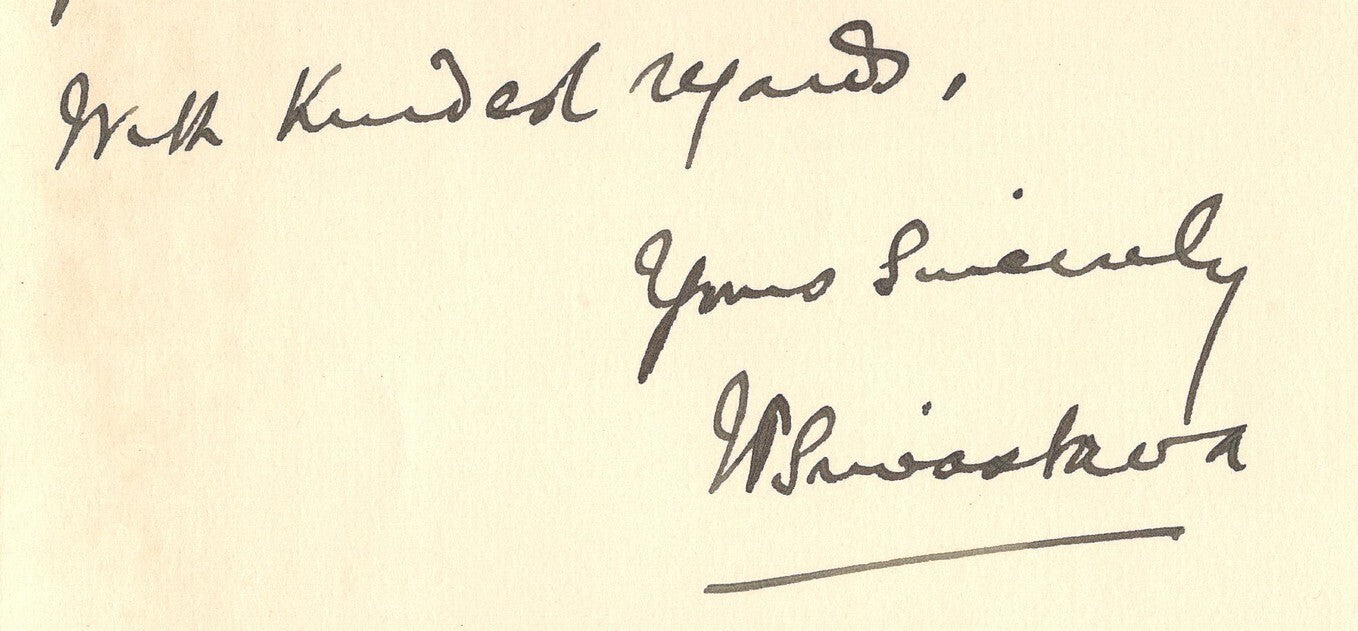 With Kindest regards,
Yours Sincerely
JPSrivastava